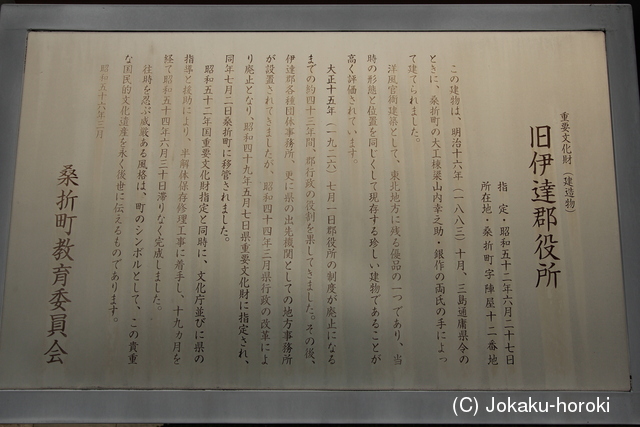 重要文化財（建造物）
旧伊達郡役所
指定・昭和五十二年六月二十七日
所在地・桑折町字陣屋十二番地
この建物は、明治十六年（一八八三）十月、三島通庸県令の
ときに、桑折町の大工棟梁山内幸之助・銀作の両氏の手によっ
て建てられました。
洋風官衙建築として、東北地方に残る優品の一つであり、当
時の形態と位置を同じくして現存する珍しい建物であることが
高く評価されています。
大正十五年（一九二六）七月一日郡役所の制度が廃止になる
までの約四十三年間、郡行政の役割を果してきました。その後、
伊達郡各種団体事務所、更に県の出先機関としての地方事務所
が設置されてきましたが、昭和四十四年三月県行政の改革によ
り廃止となり、昭和四十九年五月七日県重要文化財に指定され、
同年七月二日桑折町に移管されました。
昭和五十二年国重要文化財指定と同時に、文化庁並びに県の
指導と援助により、半解体保存修理工事に着手し、十九カ月を
経て昭和五十四年六月三十日滞りなく完成しました。
往時を忍ぶ威厳ある風格は、町のシンボルとして、この貴重
な国民的文化遺産を永く後世に伝えるものであります。
昭和五十六年三月
桑折町教育委員会
(C) Jokaku-horoki